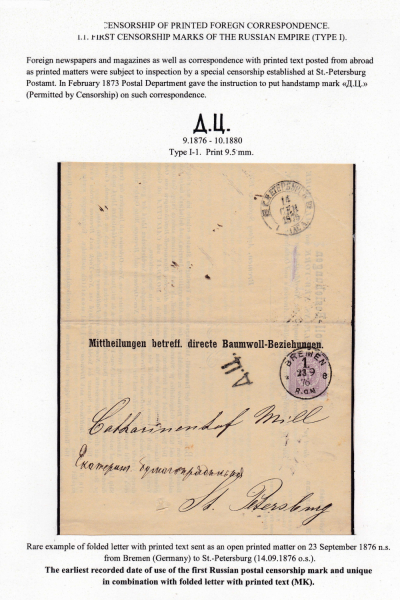 CENSORSHIP OF PRINTED FOREGN CORRESPONDENCE.
1.1. FIRST CENSORSHIP MARKS OF THE RUSSIAN EMPIRE (TYPE I).
Foreign newspapers and magazines as well as correspondence with printed text posted from abroad
as printed matters were subject to inspection by a special censorship established at St.-Petersburg
Postamt. In February 1873 Postal Department gave the instruction to put handstamp mark «Д.Ц.»
(Permitted by Censorship) on such correspondence.
Д.Ц.
9.1876 - 10.1880
Type I-1. Print 9.5 mm.
14
СЕН
1876
Mittheilungen betreff. directe Baumwoll-Beziehungen.
Д.Ц.
BREMEN
1
23 9
76
Catharinenhof Mill
Екатерин. бумагопрядильная
St. Petersburg
Rare example of folded letter with printed text sent as an open printed matter on 23 September 1876 n.s.
from Bremen (Germany) to St.-Petersburg (14.09.1876 o.s.).
The earliest recorded date of use of the first Russian postal censorship mark and unique
in combination with folded letter with printed text (MK).